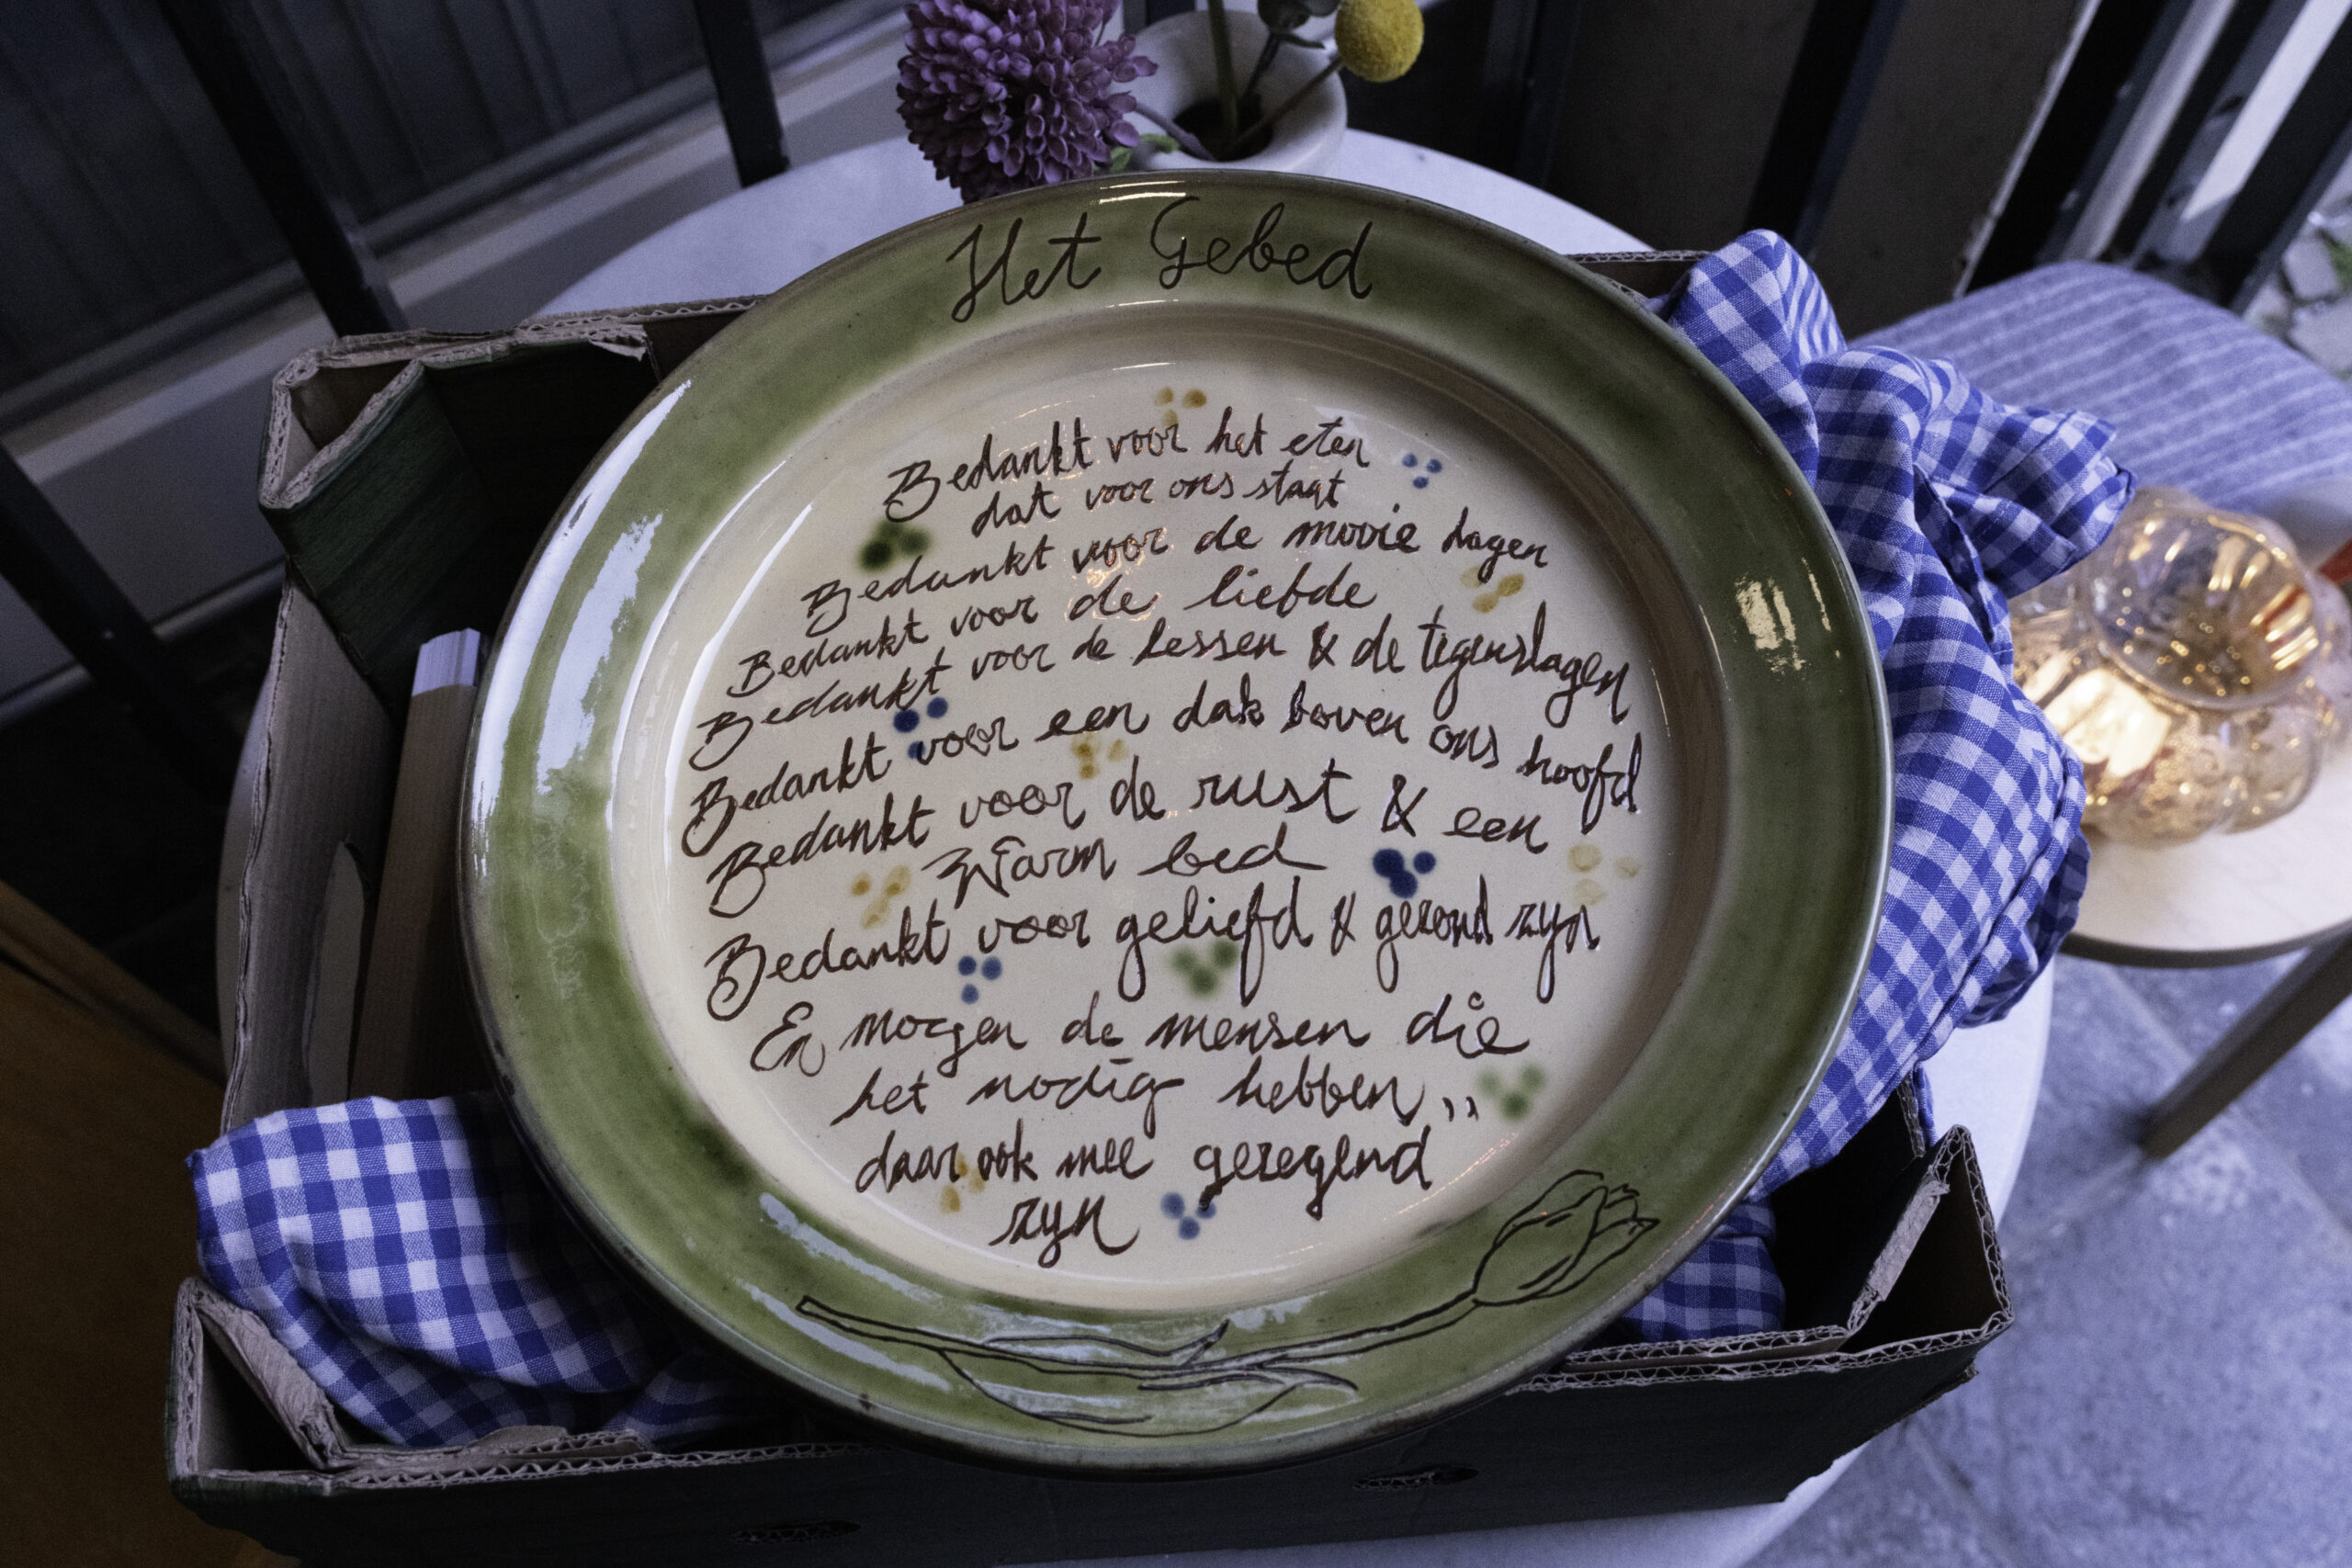 Het Gebed
Bedankt voor het eten
dat voor ons staat
Bedankt voor de mooie dagen
Bedankt voor de liefde
Bedankt voor de lessen & de tegenslagen
Bedankt voor een dak boven ons hoofd
Bedankt voor de rust & een
Warm bed
Bedankt voor geliefd & gezond zyn
En morgen de mensen die
het nodig hebben,,
daar ook mee gezegend
zyn